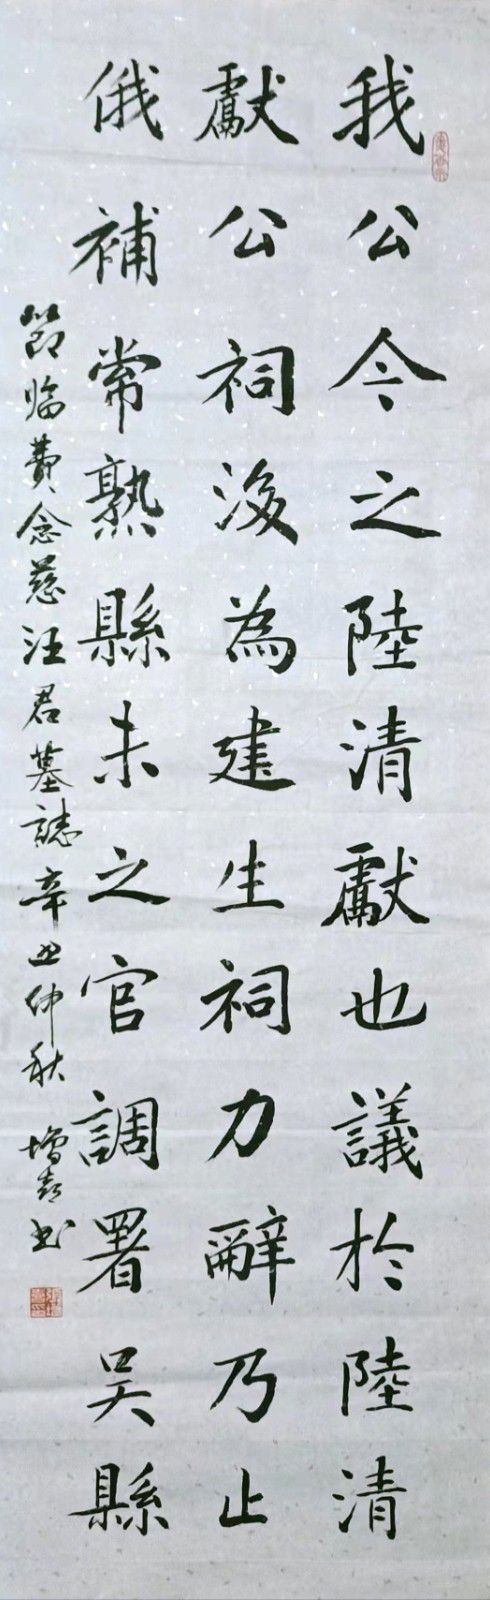 我公今之陸清獻也議於陸清
獻公祠後為建生祠力辭乃止
俄補常熟縣未之官調署吳縣
節臨費念慈汪君墓誌辛丑仲秋 增喜书